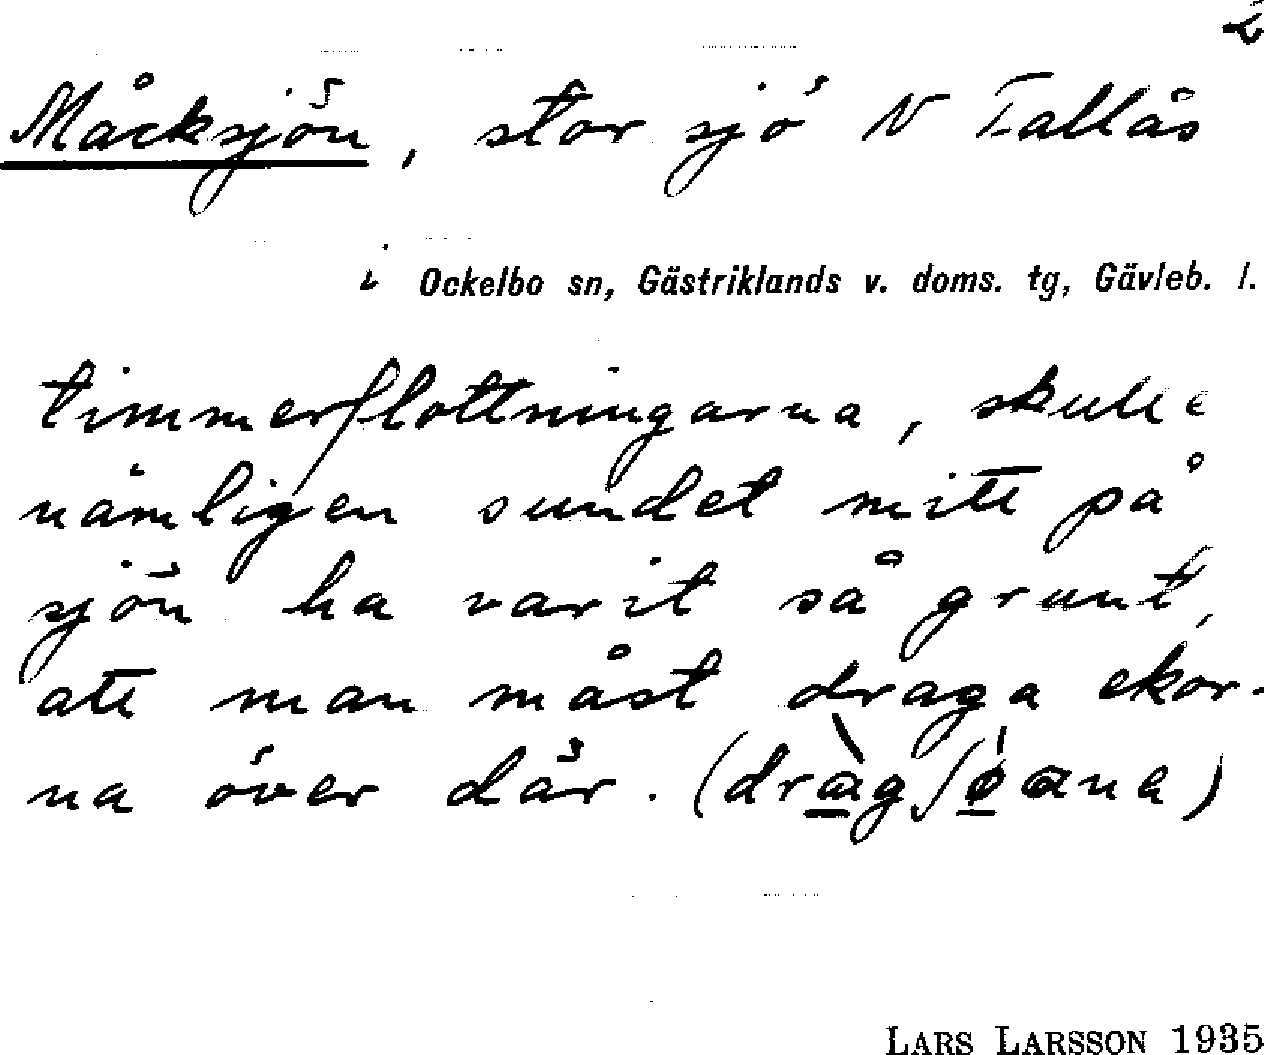 2
Måcksjön, stor sjö N Tallås
i Ockelbo sn, Gästriklands v. doms. tg, Gävleb. l.
timmerflottningarna, skulle
nämligen sundet mitt på
sjön ha varit så grunt,
att man måst draga ekor-
na över där.
LARS LARSSON 1935